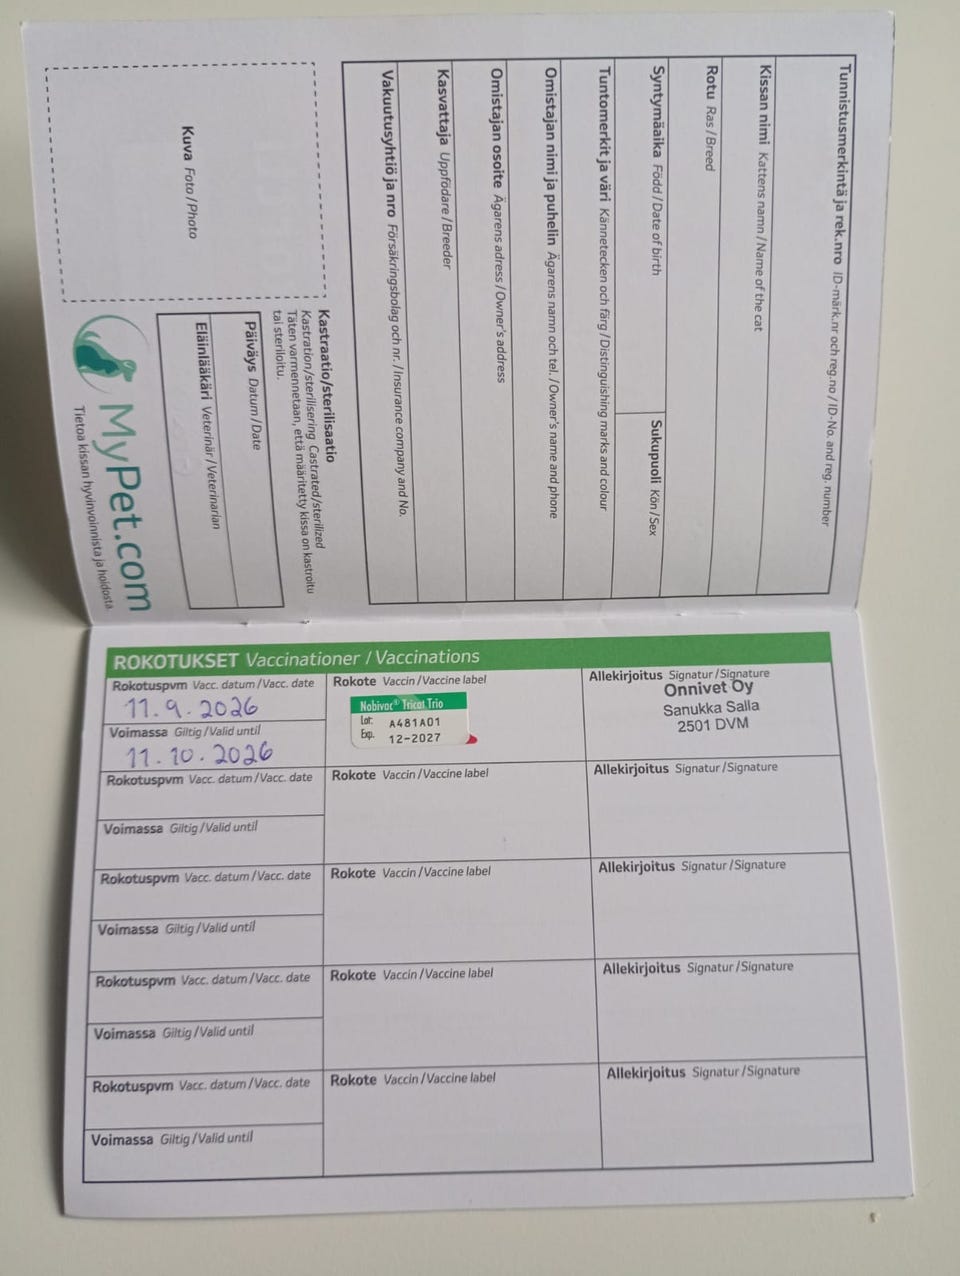 Tunnistusmerkintä ja rek.nro ID-märk.nr och reg.no / ID-No. and reg. number
Kissan nimi Kattens namn / Name of the cat
Rotu Ras / Breed
Syntymäaika Född / Date of birth
Sukupuoli Kön / Sex
Tuntomerkit ja väri Kännetecken och färg / Distinguishing marks and colour
Omistajan nimi ja puhelin Ägarens namn och tel. / Owner's name and phone
Omistajan osoite Ägarens adress / Owner's address
Kasvattaja Uppfödare / Breeder
Vakuutusyhtiö ja nro Försäkringsbolag och nr. / Insurance company and No.
Kuva Foto / Photo
Kastraatio/sterilisaatio
Kastration/sterilisering Castrated/sterilized
Täten varmennetaan, että määritetty kissa on kastroitu
tai steriloitu.
Päiväys Datum / Date
Eläinlääkäri Veterinär / Veterinarian
MyPet.com
Tietoa kissan hyvinvoinnista ja hoidosta.
ROKOTUKSET Vaccinationer / Vaccinations
Rokotuspvm Vacc. datum / Vacc. date
11.9.2026
Voimassa Giltig / Valid until
11.10.2026
Rokote Vaccin / Vaccine label
Nobivac® Tricat Trio
Lot: A481A01
Exp. 12-2027
Allekirjoitus Signatur / Signature
Onnivet Oy
Sanukka Salla
2501 DVM
Rokotuspvm Vacc. datum / Vacc. date
Voimassa Giltig / Valid until
Rokote Vaccin / Vaccine label
Allekirjoitus Signatur / Signature
Rokotuspvm Vacc. datum / Vacc. date
Voimassa Giltig / Valid until
Rokote Vaccin / Vaccine label
Allekirjoitus Signatur / Signature
Rokotuspvm Vacc. datum / Vacc. date
Voimassa Giltig / Valid until
Rokote Vaccin / Vaccine label
Allekirjoitus Signatur / Signature
Rokotuspvm Vacc. datum / Vacc. date
Voimassa Giltig / Valid until
Rokote Vaccin / Vaccine label
Allekirjoitus Signatur / Signature